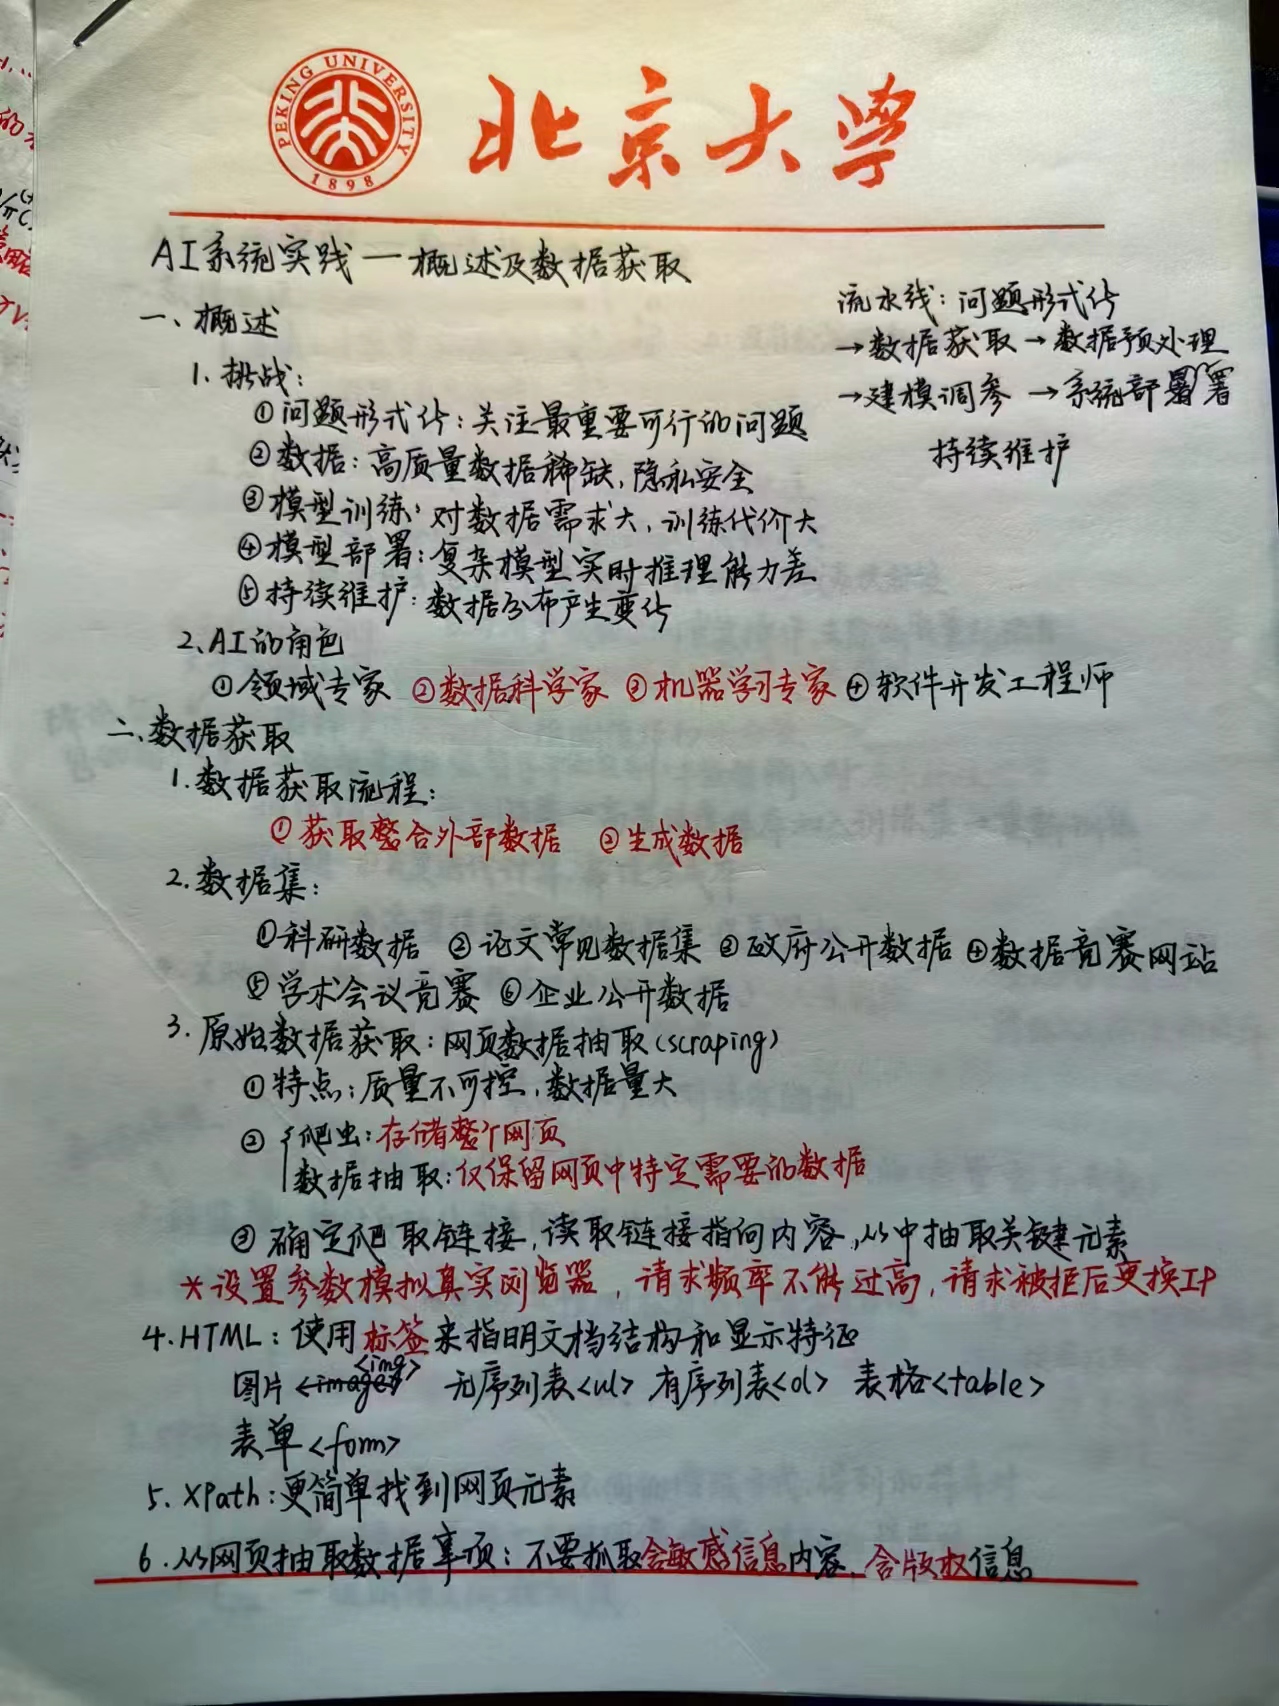 PEKING UNIVERSITY
1898
北京大学
AI系统实践一概述及数据获取
一、概述
流水线：问题形式化
→数据获取→数据预处理
→建模调参→系统部署
持续维护
1. 挑战：
①问题形式化：关注最重要可行的问题
②数据：高质量数据稀缺，隐私安全
③模型训练：对数据需求大，训练代价大
④模型部署：复杂模型实时推理能力差
⑤持续维护：数据分布产生变化
2. AI的角色
①领域专家 ②数据科学家 ③机器学习专家 ④软件开发工程师
二、数据获取
1. 数据获取流程：
①获取整合外部数据 ②生成数据
2. 数据集：
①科研数据 ②论文常见数据集 ③政府公开数据 ④数据竞赛网站
⑤学术会议竞赛 ⑥企业公开数据
3. 原始数据获取：网页数据抽取（scraping）
①特点：质量不可控，数据量大
② 爬虫：存储整个网页
数据抽取：仅保留网页中特定需要的数据
③确定爬取链接，读取链接指向内容，从中抽取关键元素
*设置参数模拟真实浏览器，请求频率不能过高，请求被拒后更换IP
4. HTML：使用标签来指明文档结构和显示特征
图片<img> 无序列表<ul> 有序列表<ol> 表格<table>
表单<form>
5. XPath：更简单找到网页元素
6. 从网页抽取数据事项：不要抓取含敏感信息内容，含版权信息